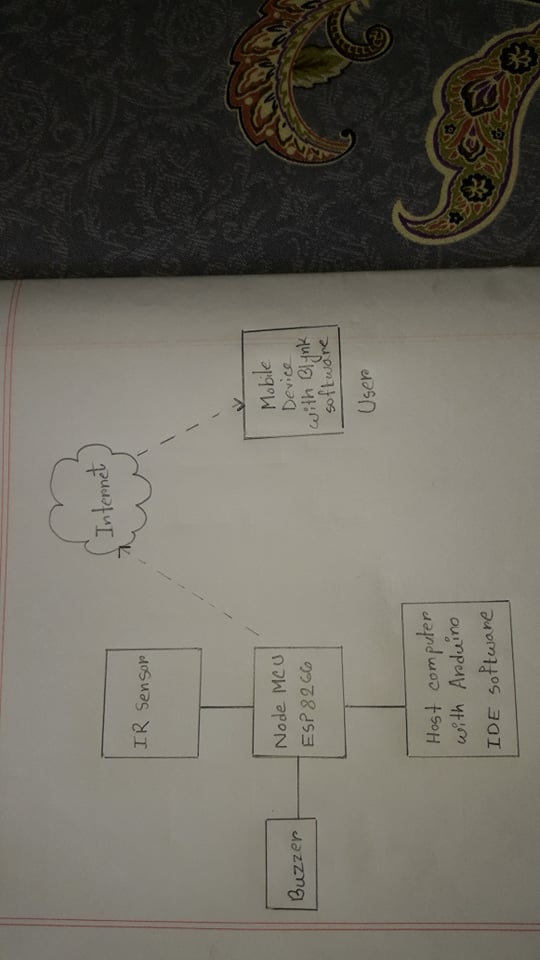 Internet
IR Sensor
Node MCU
ESP8266
Buzzer
Mobile
Device
with Blynk
software
User
Host computer
with Arduino
IDE software